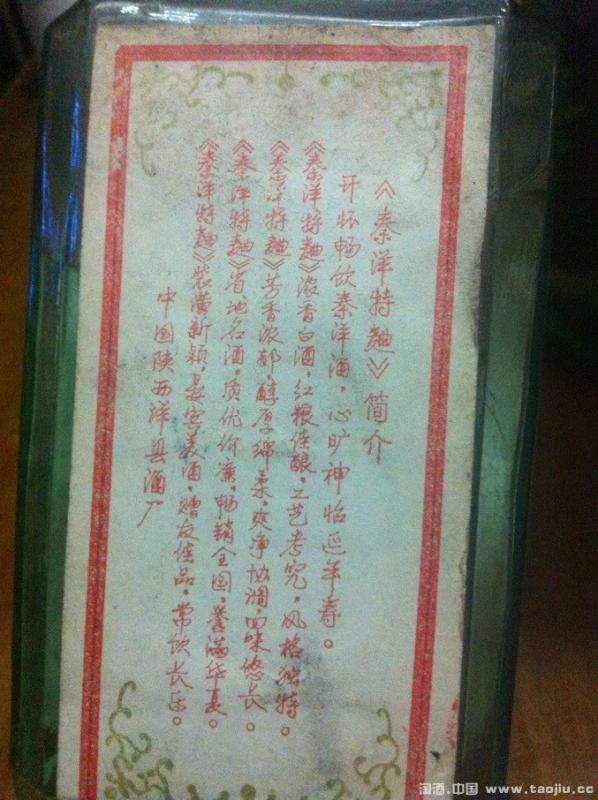 《秦洋特麯》简介
开怀畅饮秦洋酒，心旷神怡延年寿。
《秦洋特麯》浓香白酒，红粮佳酿，工艺考究，风格独特。
《秦洋特麯》芳香浓郁，醇厚绵柔，爽净协调，回味悠长。
《秦洋特麯》省地名酒，质优价廉，畅销全国，誉满华夏。
《秦洋特麯》装潢新颖，宴宾美酒，赠友佳品，常饮长乐。
中国陕西洋县酒厂
淘酒.中国 www.taojiu.cc